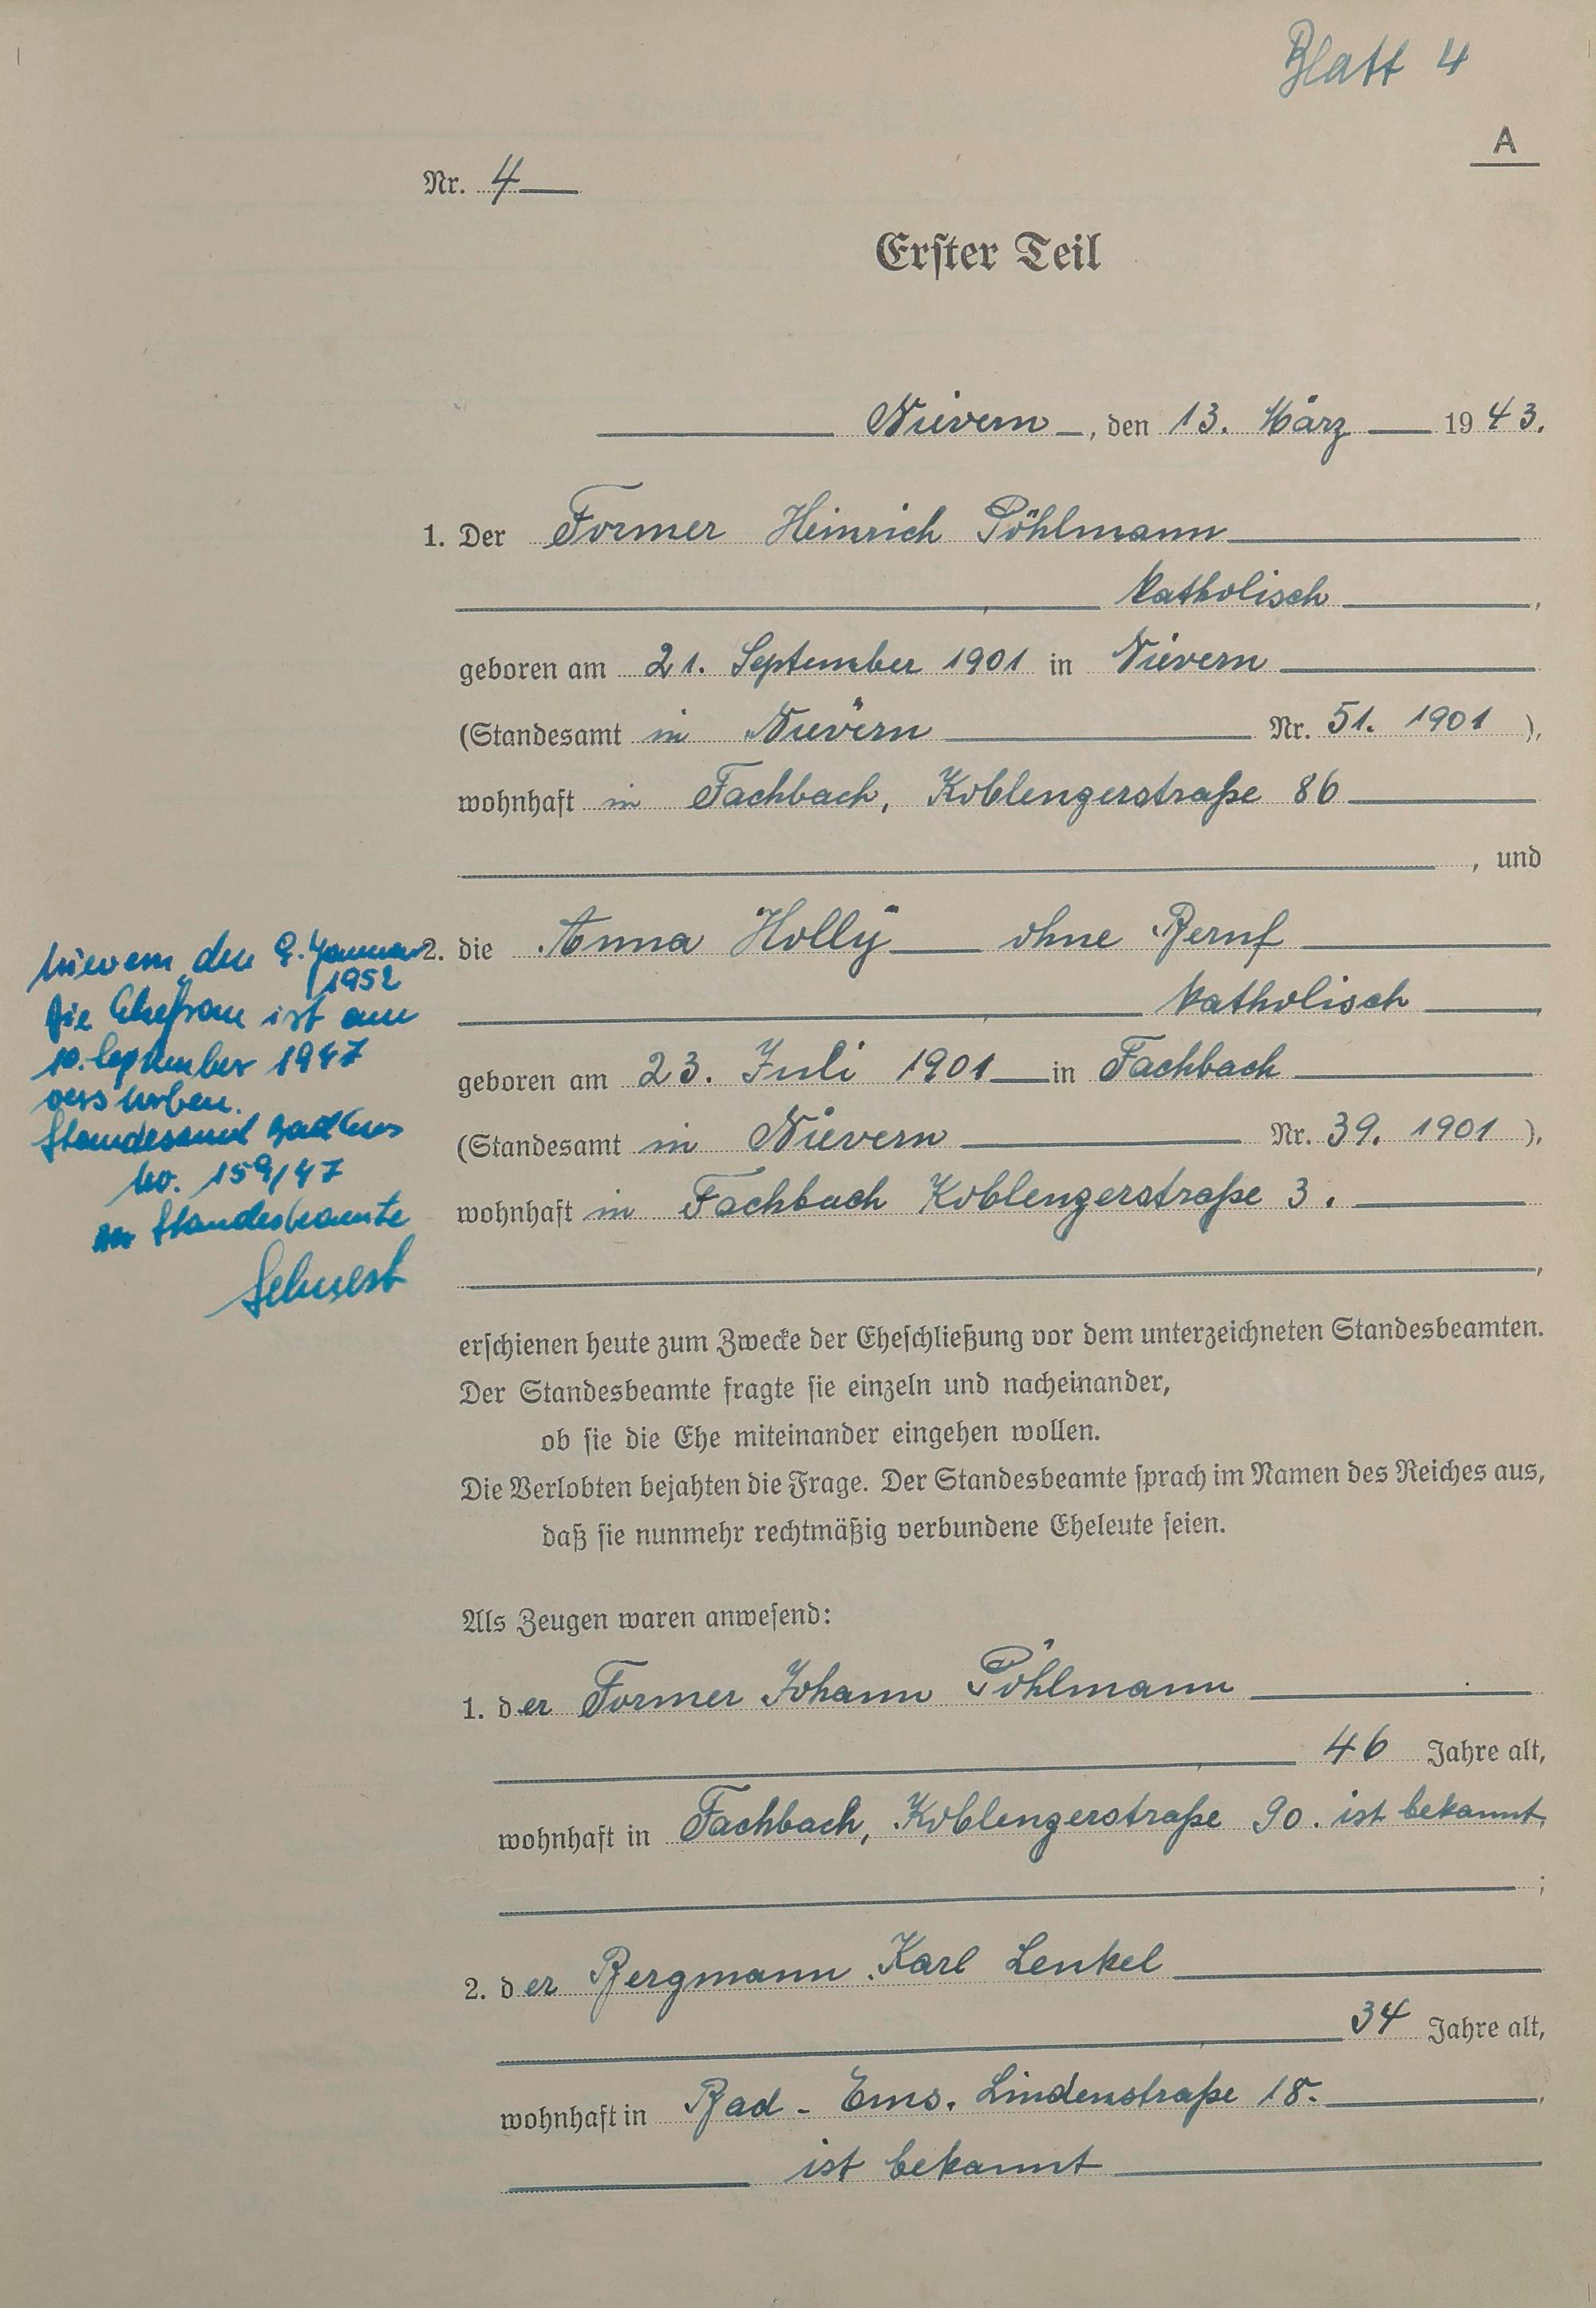 Blatt 4
A
Nr. 4
Erster Teil
Nievern, den 13. März 1943.
1. Der Former Heinrich Pöhlmann
katholisch,
geboren am 21. September 1901 in Nievern
(Standesamt in Nievern Nr. 51. 1901),
wohnhaft in Fachbach, Koblenzerstraße 86
, und
2. die Anna Holly ohne Beruf
katholisch,
geboren am 23. Juli 1901 in Fachbach
(Standesamt in Nievern Nr. 39. 1901),
wohnhaft in Fachbach Koblenzerstraße 3.
,
Nievern, den 9. Januar
1952
Die Ehefrau ist am
10. September 1947
verstorben.
Standesamt Bad Ems
No. 159/47
Der Standesbeamte
erschienen heute zum Zwecke der Eheschließung vor dem unterzeichneten Standesbeamten.
Der Standesbeamte fragte sie einzeln und nacheinander,
ob sie die Ehe miteinander eingehen wollen.
Die Verlobten bejahten die Frage. Der Standesbeamte sprach im Namen des Reiches aus,
daß sie nunmehr rechtmäßig verbundene Eheleute seien.
Als Zeugen waren anwesend:
1. der Former Johann Pöhlmann
46 Jahre alt,
wohnhaft in Fachbach, Koblenzerstraße 90. ist bekannt,
;
2. der Bergmann Karl Lenkel
34 Jahre alt,
wohnhaft in Bad-Ems. Lindenstraße 18.,
ist bekannt